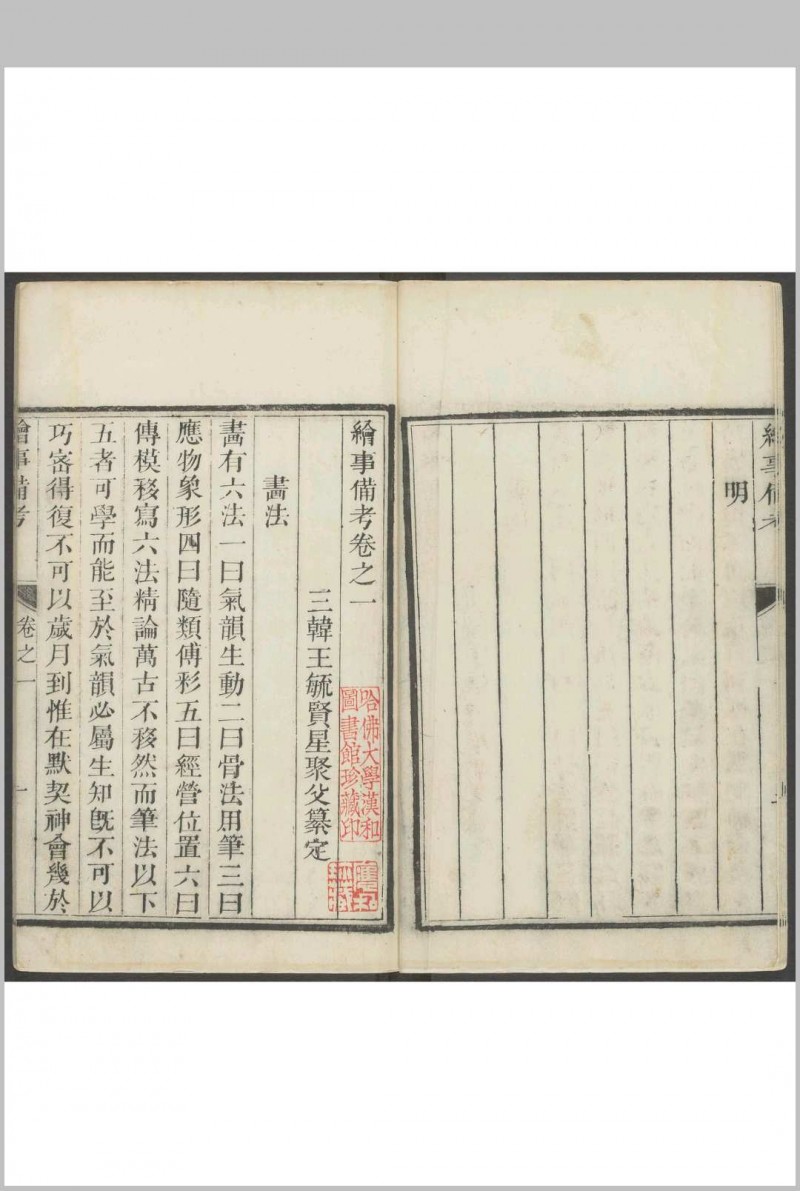 繪事備考
明
繪事備考卷之一
三韓王毓賢星聚父纂定
畫法
畫有六法一曰氣韻生動二曰骨法用筆三曰
應物象形四曰隨類傅彩五曰經營位置六曰
傳模移寫六法精論萬古不移然而筆法以下
五者可學而能至於氣韻必屬生知旣不可以
巧密得復不可以歲月到惟在默契神會幾於
繪事備考
卷之一
一
哈佛大學漢和
圖書館珍藏印